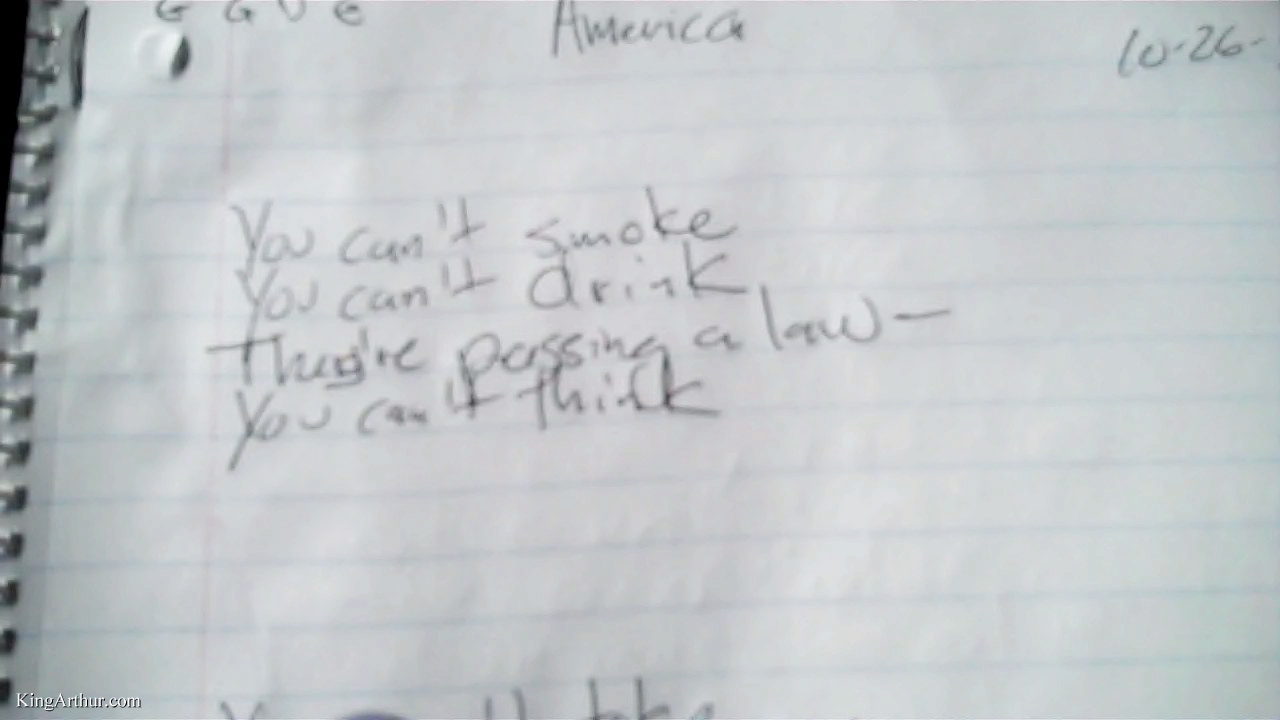 G G D G
America
10-26-
You can't smoke
You can't drink
They're passing a law —
You can't think
KingArthur.com